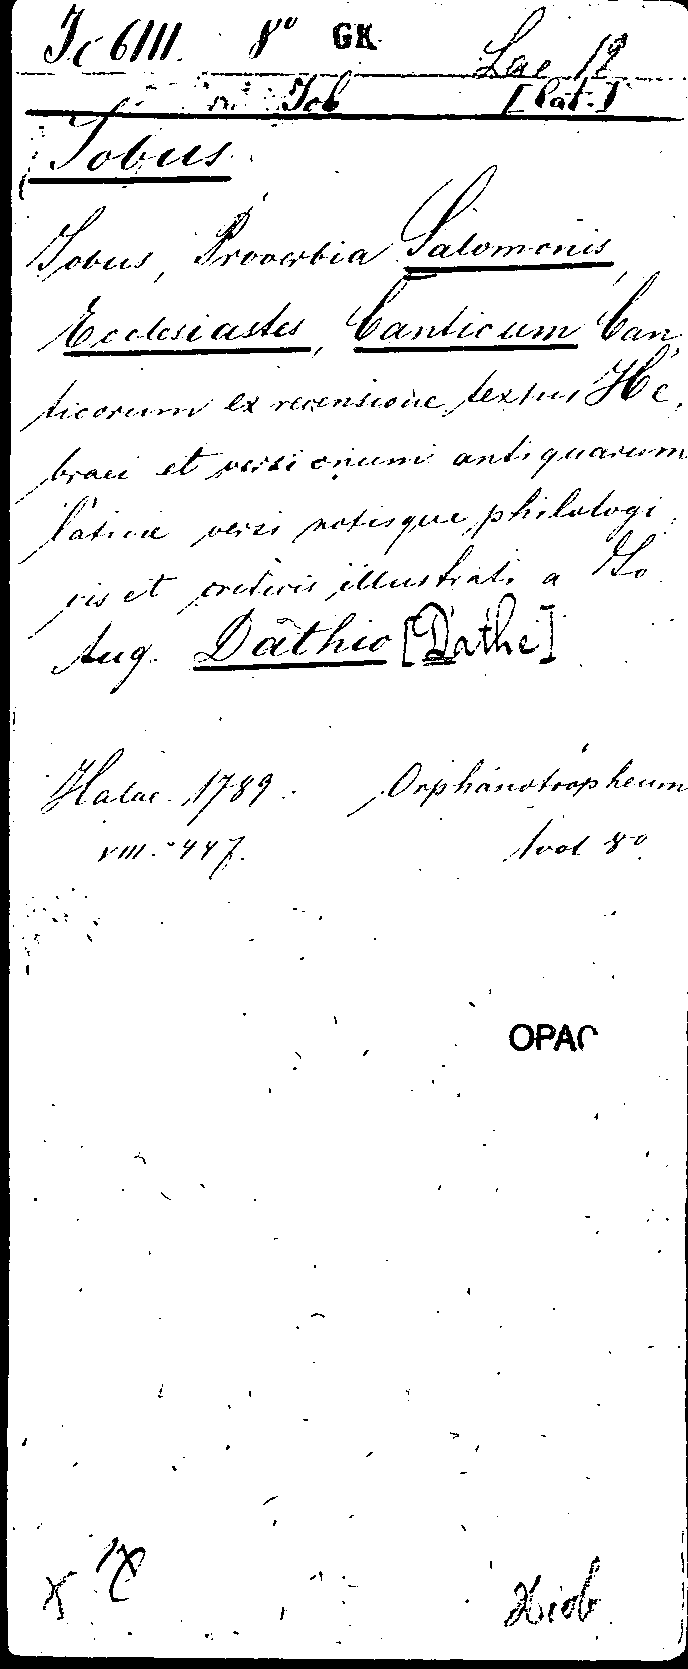 Ic 6111. 8° GK
Job [Lat.]
Jobus.
Jobus, Proverbia Salomonis,
Ecclesiastes, Canticum Can-
ticorum ex recensione textus He-
braei et versionum antiquarum
latine versi notisque philologi-
cis et criticis illustrati a Jo.
Aug. Dathio [Dathe]
Halae. 1789. Orphanotropheum
VIII. 447. 1 vol 8°.
OPAC
x
Hiob